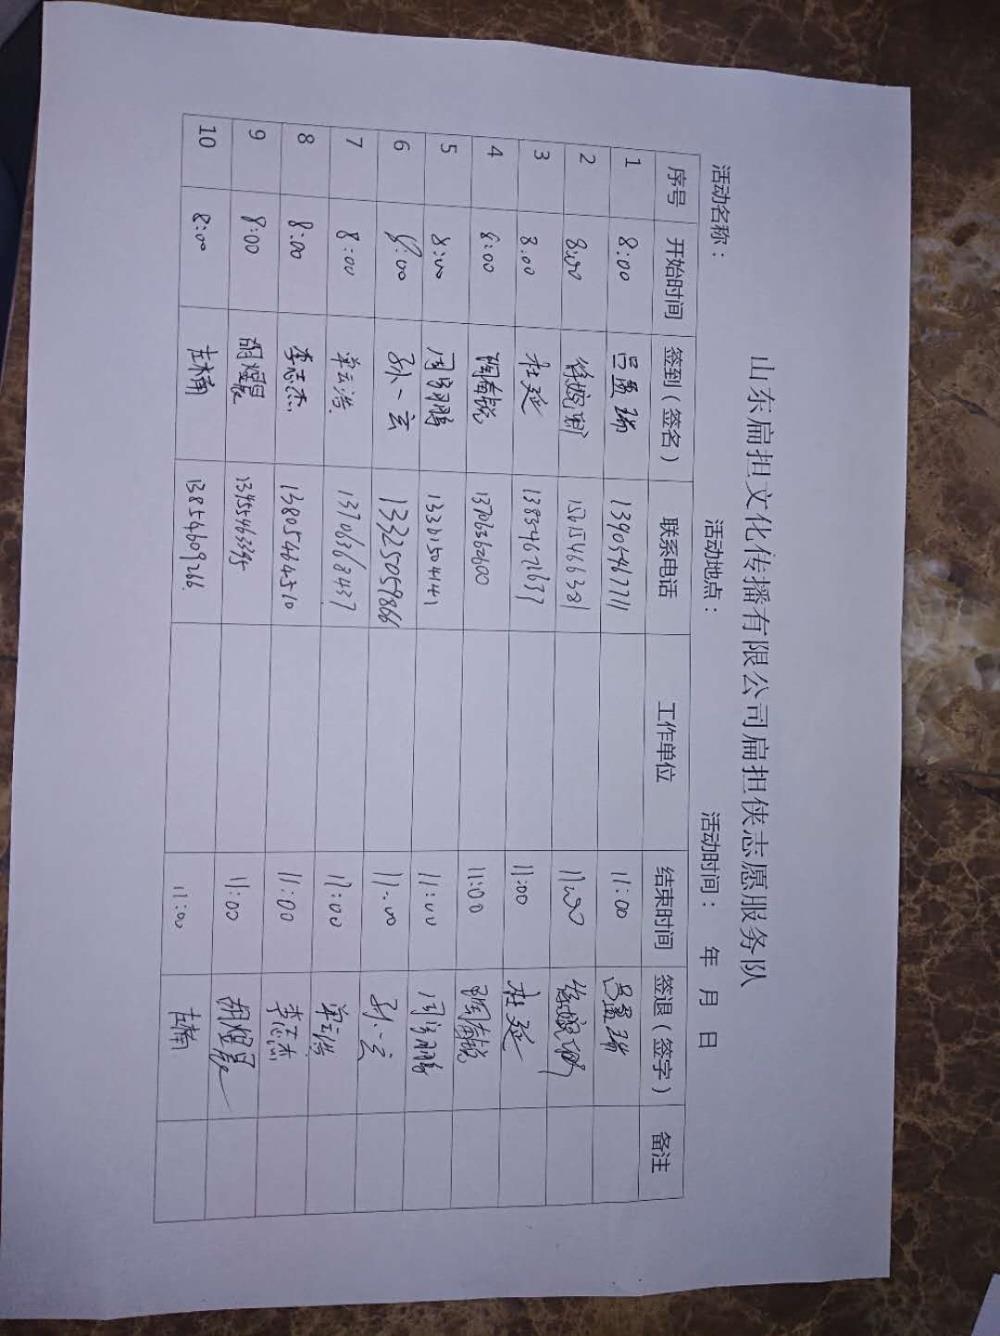 山东扁担文化传播有限公司扁担侠志愿服务队
活动名称： 活动地点： 活动时间： 年 月 日
序号 开始时间 签到（签名） 联系电话 工作单位 结束时间 签退（签字） 备注
1 8:00 吕盈瑞 13905461711 11:00 吕盈瑞
2 8:00 15615466381 11:00
3 8:00 杜延 13854671637 11:00 杜延
4 8:00 陶春锐 13706362600 11:00 陶春锐
5 8:00 13361504441 11:00
6 8:00 孙一言 13325059866 11:00 孙一言
7 8:00 单云浩 13706368437 11:00 单云浩
8 8:00 李志杰 13805464510 11:00 李志杰
9 8:00 胡煜晨 13455463395 11:00 胡煜晨
10 8:00 左楠 13854609266 11:00 左楠